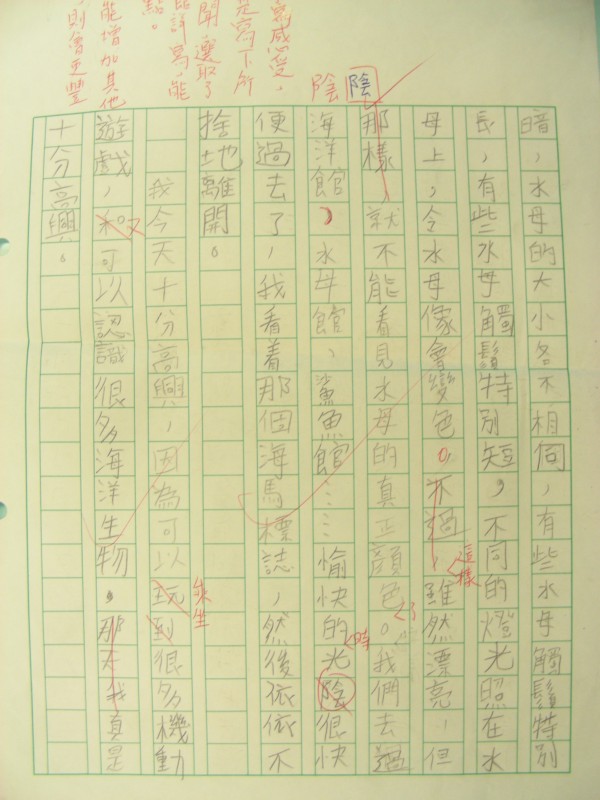 陰
陰
感受，
是寫下所
選取了
詳寫，能
點。
能增加其他
則會更豐
暗，水母的大小各不相同，有些水母觸鬚特別
長，有些水母觸鬚特別短，不同的燈光照在水
母上，令水母像會變色。不過，雖然漂亮，但
這樣
那樣，就不能看見水母的真正顏色。我們去過
了
海洋館、水母館、鯊魚館……愉快的光陰很快
時
便過去了，我看着那個海馬標誌，然後依依不
捨地離開。
我今天十分高興，因為可以玩到很多機動
乘坐
遊戲，和又可以認識很多海洋生物。那天我真是
十分高興。